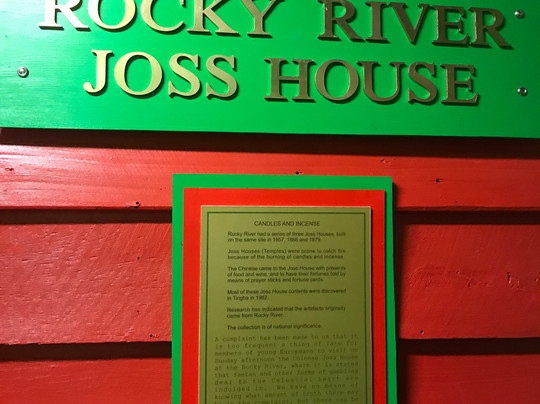 ROCKY RIVER
JOSS HOUSE
CANDLES AND INCENSE
Rocky River had a series of three Joss Houses, built
on the same site in 1857, 1866 and 1879.
Joss Houses (Temples) were prone to catch fire
because of the burning of candles and incense.
The Chinese came to the Joss House with presents
of food and wine, and to have their fortunes told by
means of prayer sticks and fortune cards.
Most of these Joss House contents were discovered
in Tingha in 1982.
Research has indicated that the artefacts originally
came from Rocky River.
The collection is of national significance.
A complaint has been made to us that it
is too frequent a thing of late for
members of young Europeans to visit on
Sunday afternoon the Chinese Joss House
at the Rocky River, where it is stated
that fantan and other forms of gambling
dear to the Celestial heart are
indulged in. We have no means of
knowing what amount of truth there may